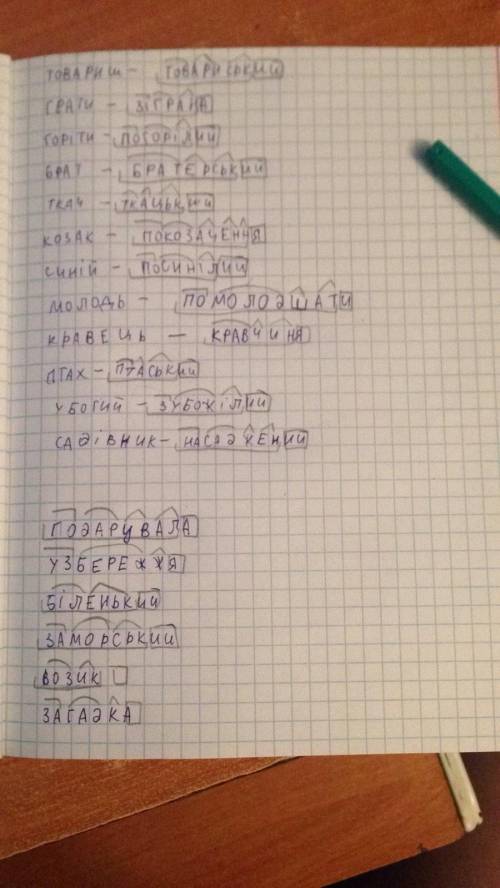 ТОВАРИШ - ТОВАРИСЬКИЙ
ГРАТИ - ЗІГРАНА
ГОРІТИ - ПОГОРІЛИЙ
БРАТ - БРАТЕРСЬКИЙ
ТКАЧ - ТКАЦЬКИЙ
КОЗАК - ПОКОЗАЧЕННЯ
СИНІЙ - ПОСИНІЛИЙ
МОЛОДЬ - ПОМОЛОДШАТИ
КРАВЕЦЬ - КРАВЧИНЯ
ПТАХ - ПТАСЬКИЙ
УБОГИЙ - ЗУБОЖІЛИЙ
САДІВНИК - НАСАДЖЕНИЙ
ПОДАРУВАЛА
УЗБЕРЕЖЖЯ
БІЛЕНЬКИЙ
ЗАМОРСЬКИЙ
ВОЗИК
ЗАГАДКА